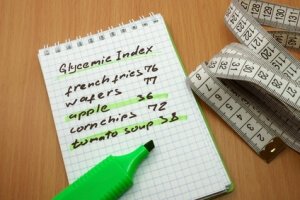 Glycemic Index
french fries 76
wafers 77
apple 36
corn chips 72
tomato soup 38